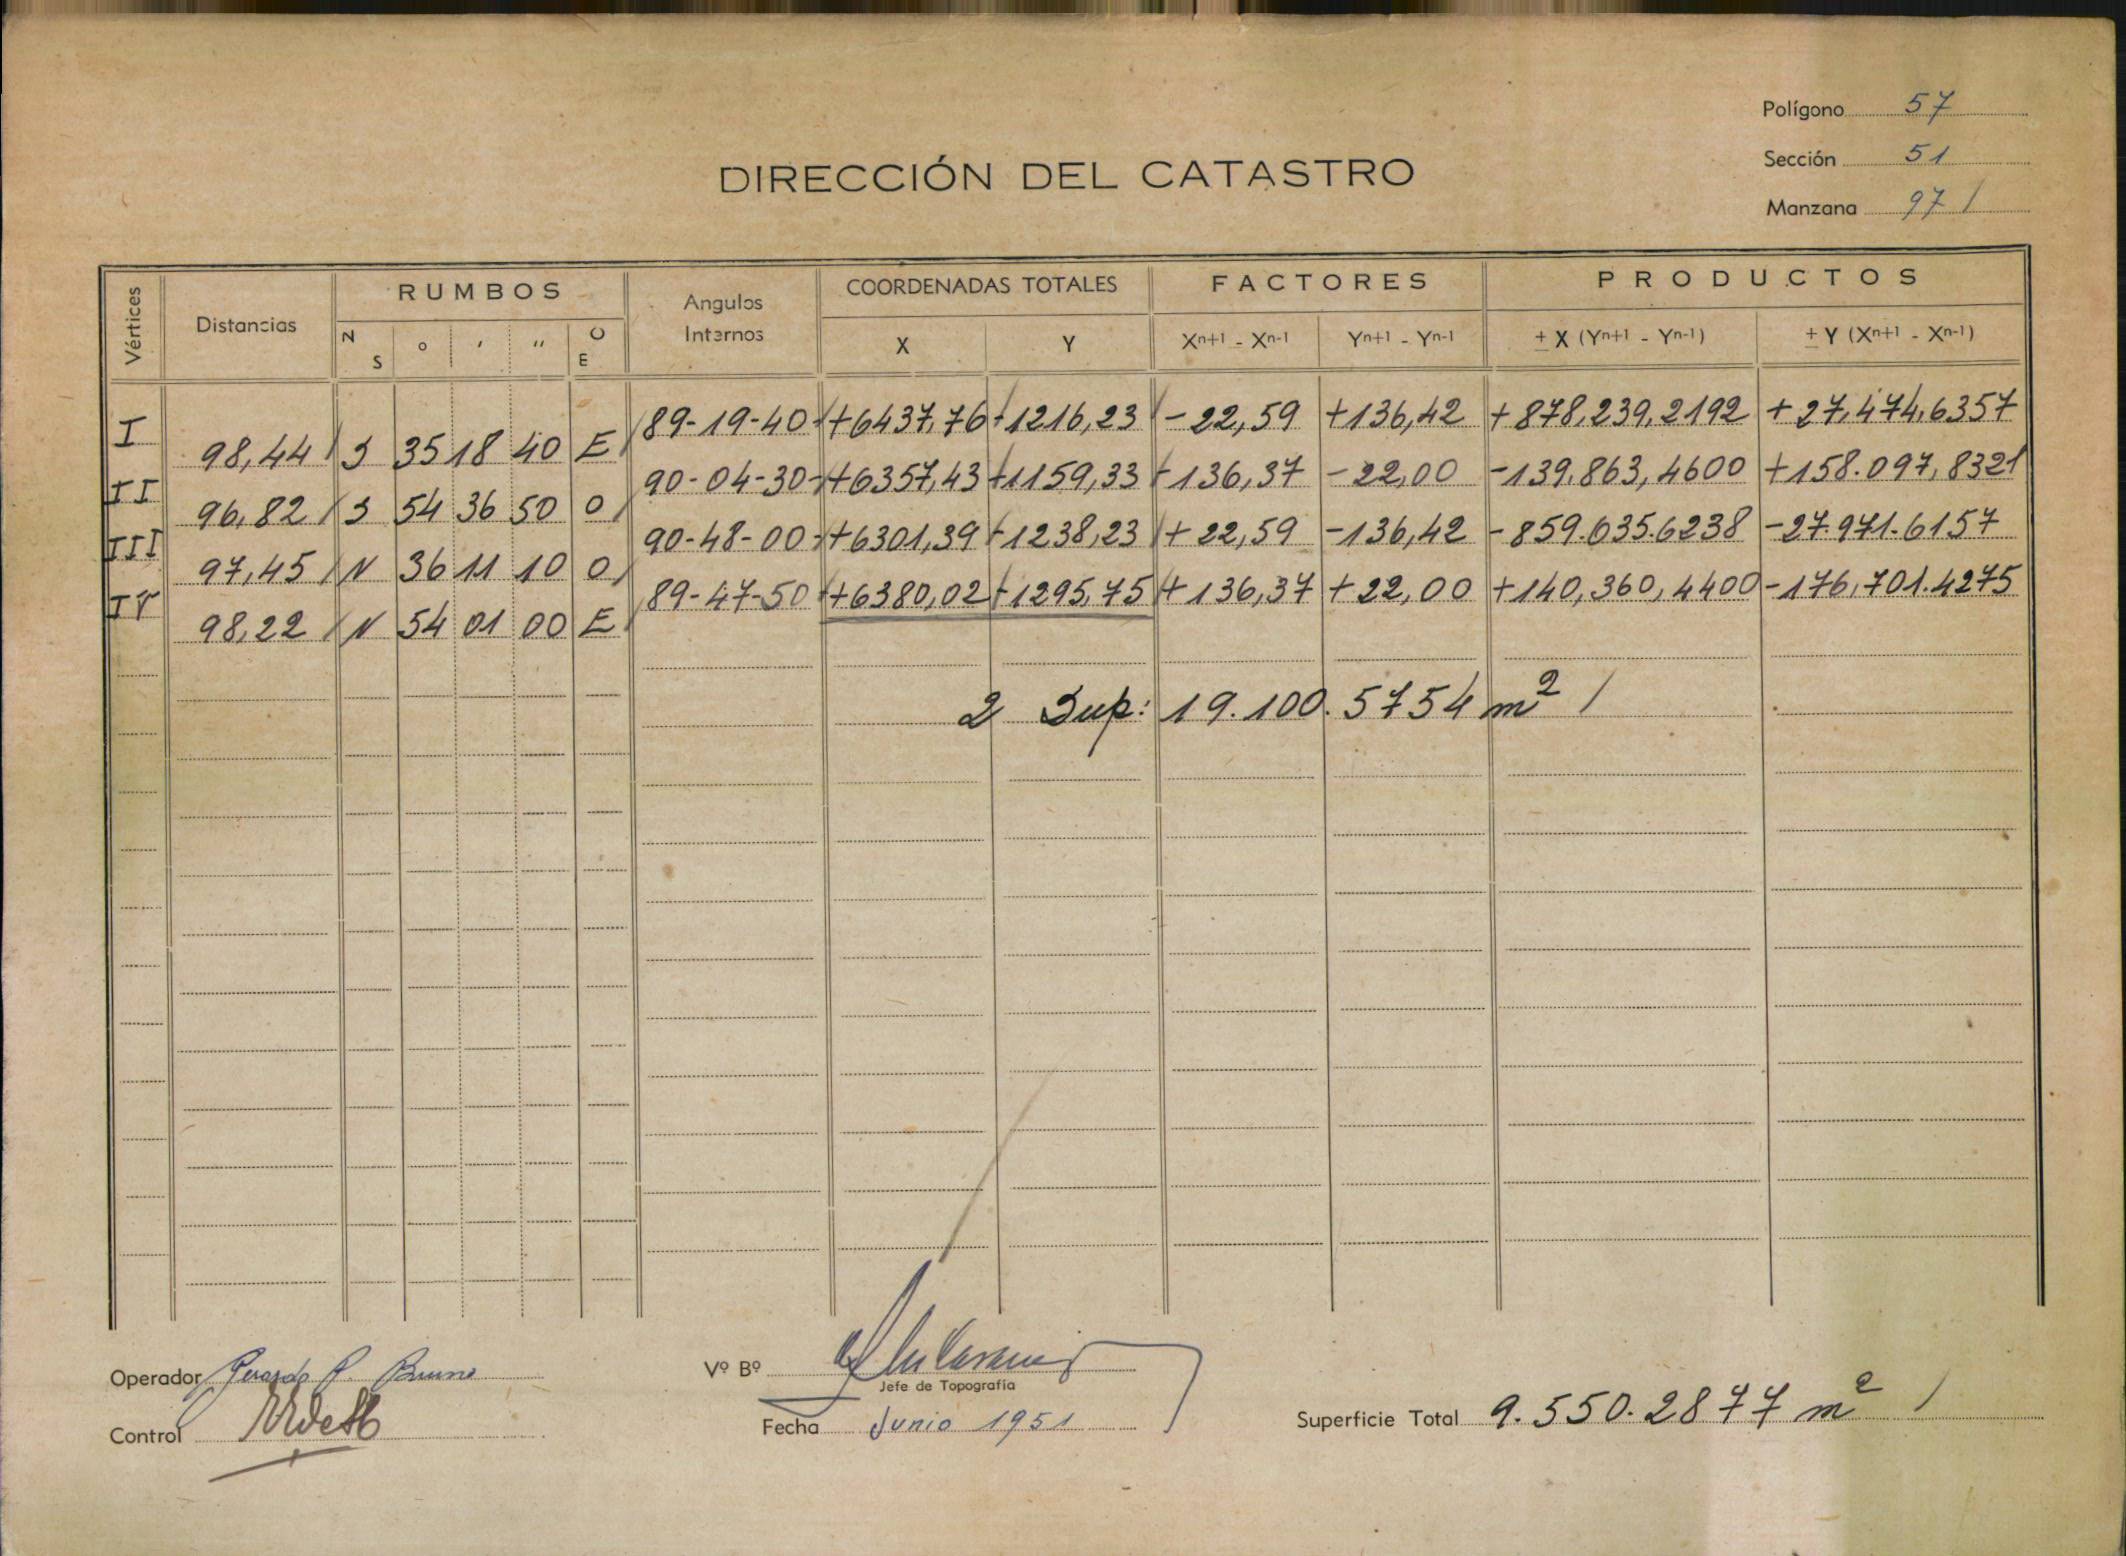 Polígono 57
Sección 51
Manzana 97 /
DIRECCIÓN DEL CATASTRO
Vértices Distancias RUMBOS Angulos Internos COORDENADAS TOTALES FACTORES PRODUCTOS
N S ° ′ ″ O E X Y Xn+1 - Xn-1 Yn+1 - Yn-1 ± X (Yn+1 - Yn-1) ± Y (Xn+1 - Xn-1)
I 89-19-40 +6437,76 +1216,23 -22,59 +136,42 +878,239,2192 +27,474,6357
98,44 S 35 18 40 E
II 90-04-30 +6357,43 +1159,33 -136,37 -22,00 -139.863,4600 +158.097,8321
96,82 S 54 36 50 O
III 90-48-00 +6301,39 +1238,23 +22,59 -136,42 -859.635.6238 -27.971.6157
97,45 N 36 11 10 O
IV 89-47-50 +6380,02 +1295,75 +136,37 +22,00 +140,360,4400 -176,701.4275
98,22 N 54 01 00 E
2 Sup: 19.100.5754 m² /
Operador Gerardo P. Bruno
Vº Bº
Jefe de Topografía
Control
Fecha Junio 1951
Superficie Total 9.550.2877 m² /